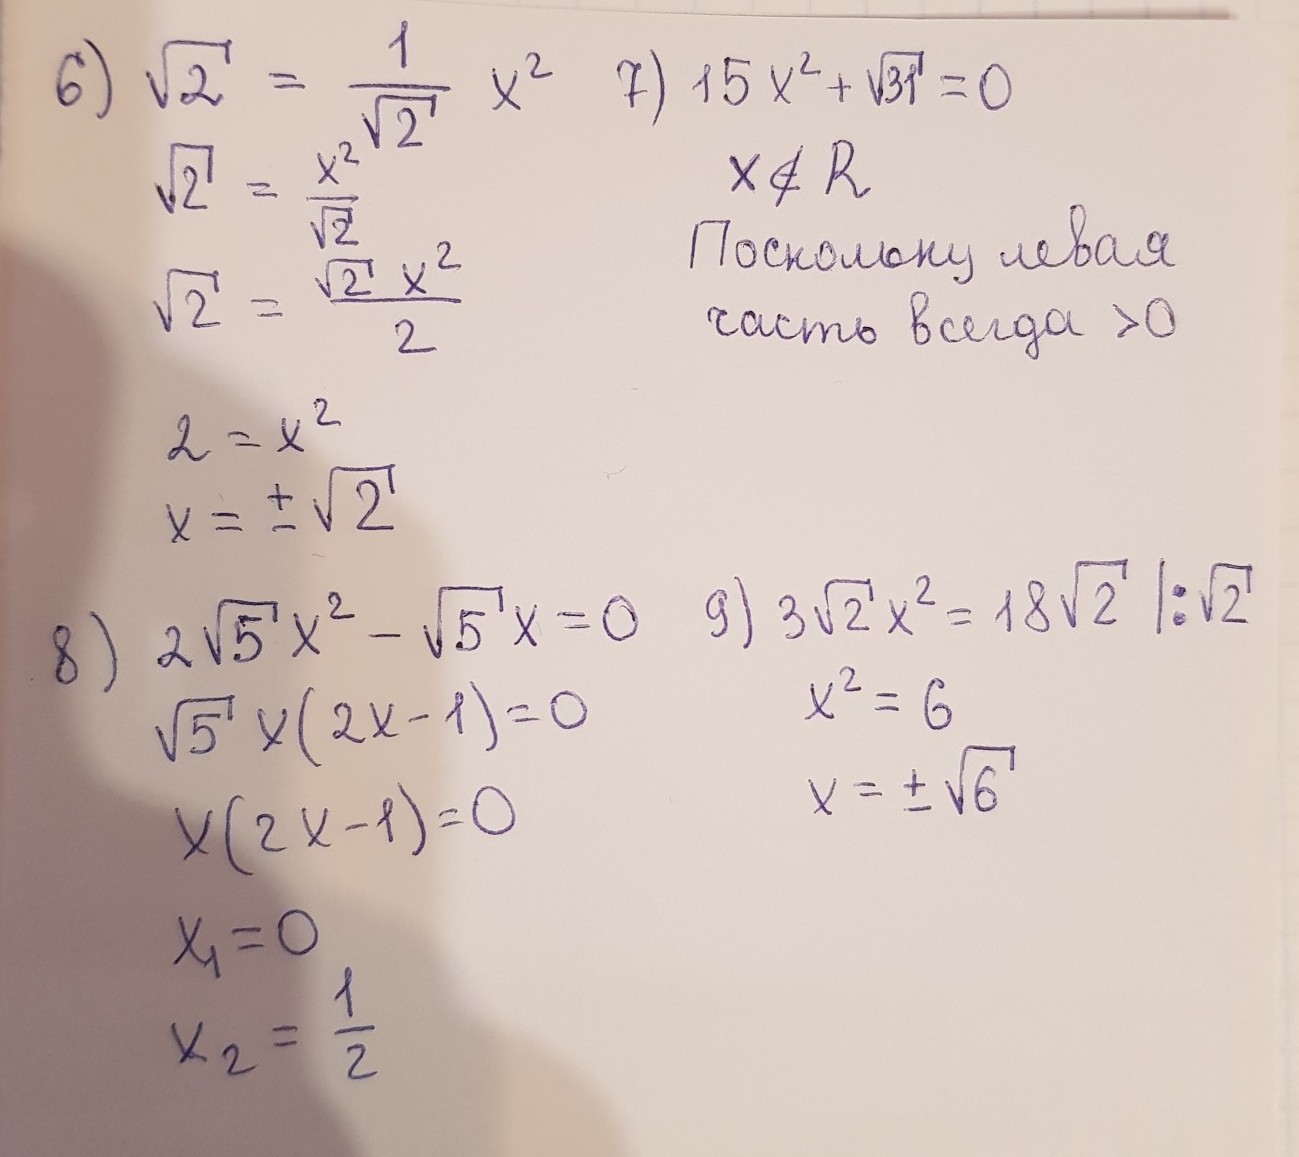 6) √2 = 1/√2 x²
√2 = x²/√2
√2 = √2 x²/2
2 = x²
x = ±√2
7) 15x² + √31 = 0
x ∉ R
Поскольку левая
часть всегда >0
8) 2√5 x² - √5 x = 0
√5 x(2x-1) = 0
x(2x-1) = 0
x₁ = 0
x₂ = 1/2
9) 3√2 x² = 18√2 |:√2
x² = 6
x = ±√6